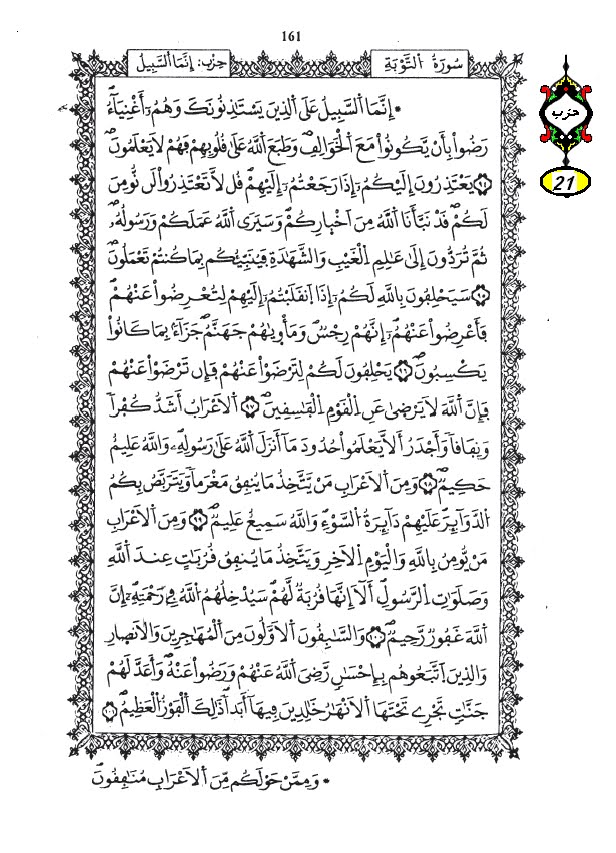 161
سُورَةُ اُ۬لتَّوْبَةِ
حِزْب: إِنَّمَا اَ۬لسَّبِيلُ
حزب
21
• إِنَّمَا اَ۬لسَّبِيلُ عَلَى اَ۬لذِينَ يَسْتَٰذِنُونَكَ وَهُمُۥٓ أَغْنِيَآءُۖ
رَضُواْ بِأَنْ يَّكُونُواْ مَعَ اَ۬لْخَوَالِفِۖ وَطَبَعَ اَ۬للَّهُ عَلَىٰ قُلُوبِهِمْ فَهُمْ لَا يَعْلَمُونَۖ
يَعْتَذِرُونَ إِلَيْكُمُۥٓ إِذَا رَجَعْتُمُۥٓ إِلَيْهِمْۖ قُل لَّا تَعْتَذِرُواْ لَن نُّومِنَ
لَكُمْۖ قَدْ نَبَّأَنَا اَ۬للَّهُ مِنَ اَخْبٰارِكُمْۖ وَسَيَرَى اَ۬للَّهُ عَمَلَكُمْ وَرَسُولُهُۥ
ثُمَّ تُرَدُّونَ إِلَىٰ عَٰلِمِ اِ۬لْغَيْبِ وَالشَّهَٰدَةِ فَيُنَبِّئُكُم بِمَا كُنتُمْ تَعْمَلُونَۖ
سَيَحْلِفُونَ بِاللَّهِ لَكُمُۥٓ إِذَا اَ۪نقَلَبْتُمُۥٓ إِلَيْهِمْ لِتُعْرِضُواْ عَنْهُمْ
فَأَعْرِضُواْ عَنْهُمُۥٓ إِنَّهُمْ رِجْسٞ وَمَأْو۪يٰهُمْ جَهَنَّمُ جَزَآءَۢ بِمَا كَانُواْ
يَكْسِبُونَۖ يَحْلِفُونَ لَكُمْ لِتَرْضَوْاْ عَنْهُمْ فَإِن تَرْضَوْاْ عَنْهُمْ
فَإِنَّ اَ۬للَّهَ لَا يَرْضَىٰ عَنِ اِ۬لْقَوْمِ اِ۬لْفَٰسِقِينَۖ اَ۬لَاعْرَابُ أَشَدُّ كُفْراٗ
وَنِفَاقاٗ وَأَجْدَرُ أَلَّا يَعْلَمُواْ حُدُودَ مَآ أَنزَلَ اَ۬للَّهُ عَلَىٰ رَسُولِهِۦ وَاللَّهُ عَلِيمٌ
حَكِيمٞۖ وَمِنَ اَ۬لَاعْرَابِ مَنْ يَّتَّخِذُ مَا يُنفِقُ مَغْرَماٗ وَيَتَرَبَّصُ بِكُمُ
اُ۬لدَّوَآئِرَۖ عَلَيْهِمْ دَآئِرَةُ اُ۬لسَّوْءِۖ وَاللَّهُ سَمِيعٌ عَلِيمٞۖ وَمِنَ اَ۬لَاعْرَابِ
مَنْ يُّومِنُ بِاللَّهِ وَالْيَوْمِ اِ۬لَاخِرِ وَيَتَّخِذُ مَا يُنفِقُ قُرُبَٰتٍ عِندَ اَ۬للَّهِ
وَصَلَوَٰتِ اِ۬لرَّسُولِۖ أَلَآ إِنَّهَا قُرُبَةٞ لَّهُمْۖ سَيُدْخِلُهُمُ اُ۬للَّهُ فِے رَحْمَتِهِۦٓۖ إِنَّ
اَ۬للَّهَ غَفُورٞ رَّحِيمٞۖ وَالسَّٰبِقُونَ اَ۬لَاوَّلُونَ مِنَ اَ۬لْمُهَٰجِرِينَ وَالَانصٰارِ
وَالذِينَ اَ۪تَّبَعُوهُم بِإِحْسَٰنٖ رَّضِيَ اَ۬للَّهُ عَنْهُمْ وَرَضُواْ عَنْهُۖ وَأَعَدَّ لَهُمْ
جَنَّٰتٖ تَجْرِے تَحْتَهَا اَ۬لَانْهَٰرُ خَٰلِدِينَ فِيهَآ أَبَداٗۖ ذَٰلِكَ اَ۬لْفَوْزُ اُ۬لْعَظِيمُۖ
• وَمِمَّنْ حَوْلَكُم مِّنَ اَ۬لَاعْرَابِ مُنَٰفِقُونَۖ